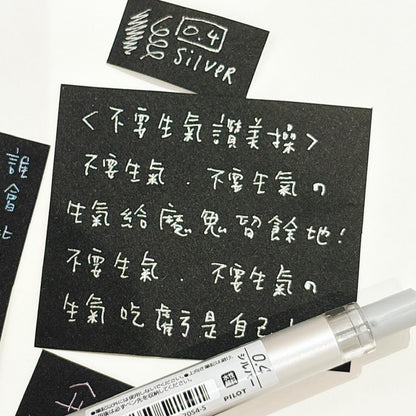 0.4
Silver
<不要生氣讚美操>
不要生氣．不要生氣の
生氣給魔鬼留餘地!
不要生氣．不要生氣の
生氣吃虧是自己!
誰
會
0.4
シルバー
PILOT
7054-5